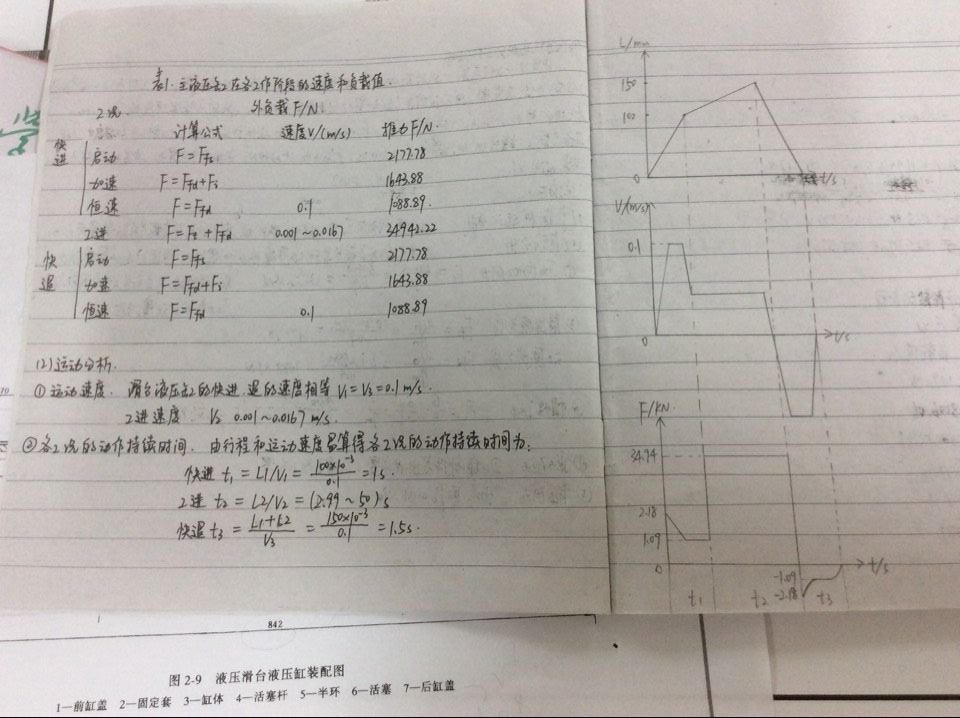 表1. 主液压缸在各工作阶段的速度和负载值.
工况. 外负载 F/N
计算公式 速度V/(m/s) 推力F/N.
快进 启动 F=Ffs 2177.78
加速 F=Ffd+Fi 1643.88
恒速 F=Ffd 0.1 1088.89.
工进 F=Ft+Ffd 0.001~0.0167 34942.22
快退 启动 F=Ffs 2177.78
加速 F=Ffd+Fi 1643.88
恒速 F=Ffd 0.1 1088.89
(2)运动分析.
① 运动速度. 滑台液压缸的快进、退的速度相等 V1=V3=0.1m/s.
工进速度. V2 0.001~0.0167 m/s.
②各工况的动作持续时间. 由行程和运动速度算得各工况的动作持续时间为:
快进 t1=L1/V1=100×10⁻³/0.1=1s
工进 t2=L2/V2=(2.99~50)s
快退 t3=L1+L2/V3=150×10⁻³/0.1=1.5s.
L/mm
150
100
0
t/s
V/(m/s)
0.1
0
t/s
F/KN.
34.94
2.18
1.09
0
t/s
-1.09
-2.18
t1 t2 t3
842
图 2-9 液压滑台液压缸装配图
1—前缸盖 2—固定套 3—缸体 4—活塞杆 5—半环 6—活塞 7—后缸盖